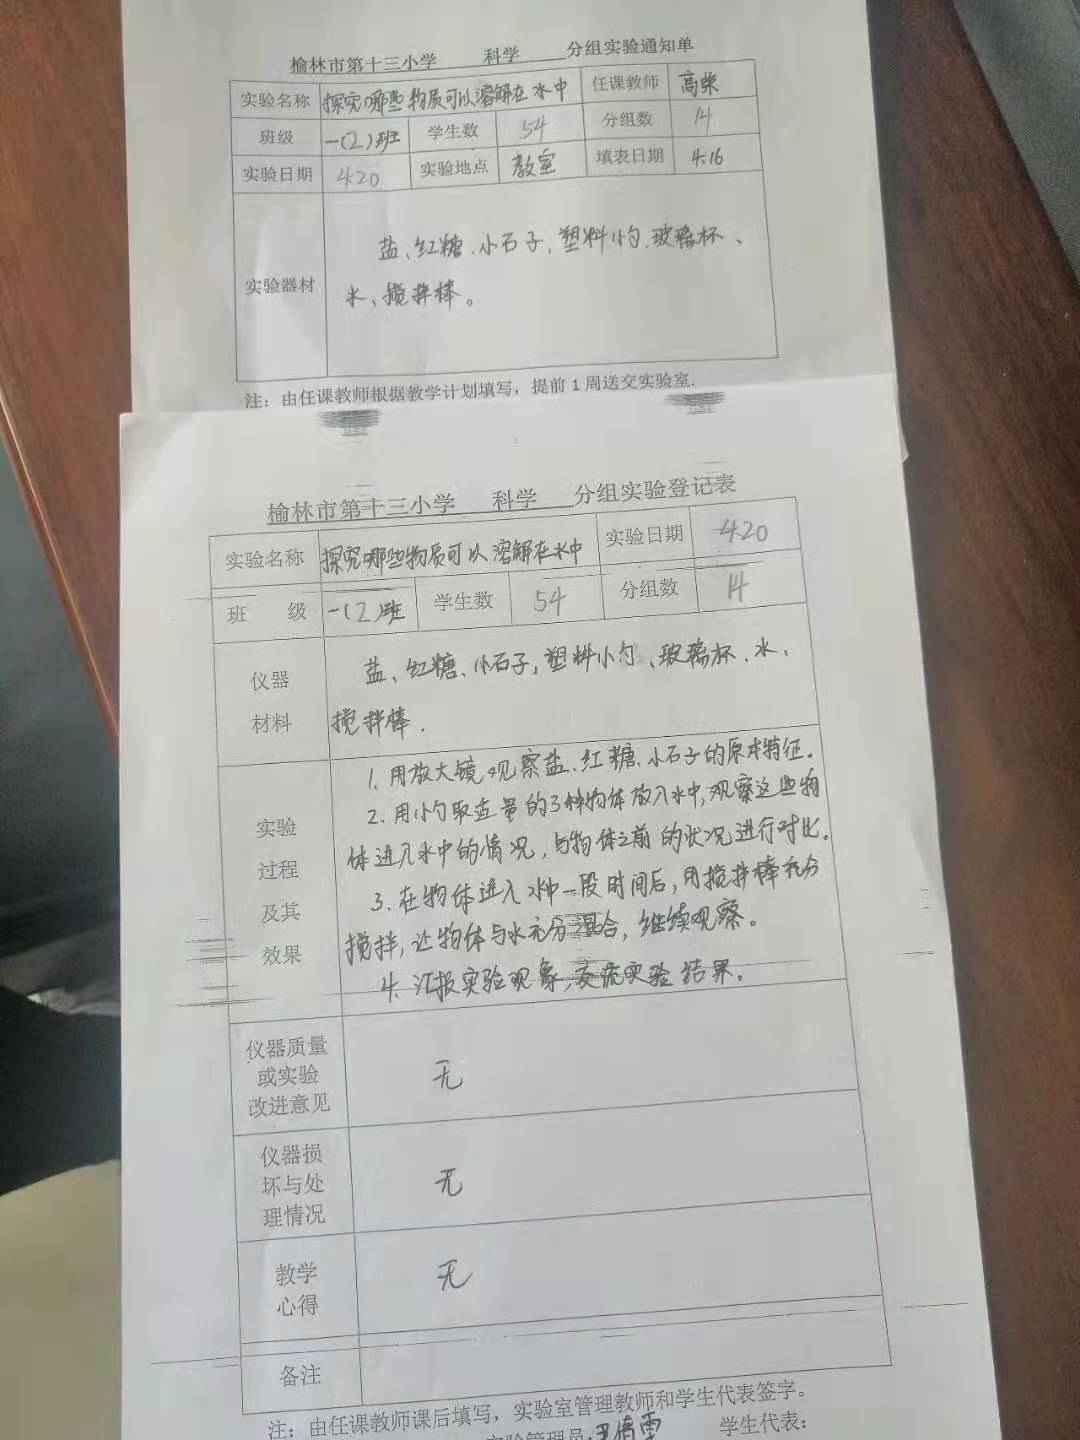 榆林市第十三小学 科学 分组实验通知单
实验名称 探究哪些物质可以溶解在水中 任课教师 高荣
班级 一(2)班 学生数 54 分组数 14
实验日期 4.20 实验地点 教室 填表日期 4.16
实验器材 盐、红糖、小石子、塑料小勺、玻璃杯、
水、搅拌棒。
注：由任课教师根据教学计划填写，提前1周送交实验室.
榆林市第十三小学 科学 分组实验登记表
实验名称 探究哪些物质可以溶解在水中 实验日期 4.20
班 级 一(2)班 学生数 54 分组数 14
仪器
材料
盐、红糖、小石子、塑料小勺、玻璃杯、水、
搅拌棒.
实验
过程
及其
效果
1. 用放大镜观察盐、红糖、小石子的原本特征。
2. 用小勺取适量的3种物体放入水中,观察这些物
体进入水中的情况，与物体之前的状况进行对比。
3. 在物体进入水中一段时间后，用搅拌棒充分
搅拌，让物体与水充分混合，继续观察。
4. 汇报实验现象，交流实验结果。
仪器质量
或实验
改进意见
无
仪器损
坏与处
理情况
无
教学
心得
无
备注
注：由任课教师课后填写，实验室管理教师和学生代表签字。
实验管理员: 学生代表：